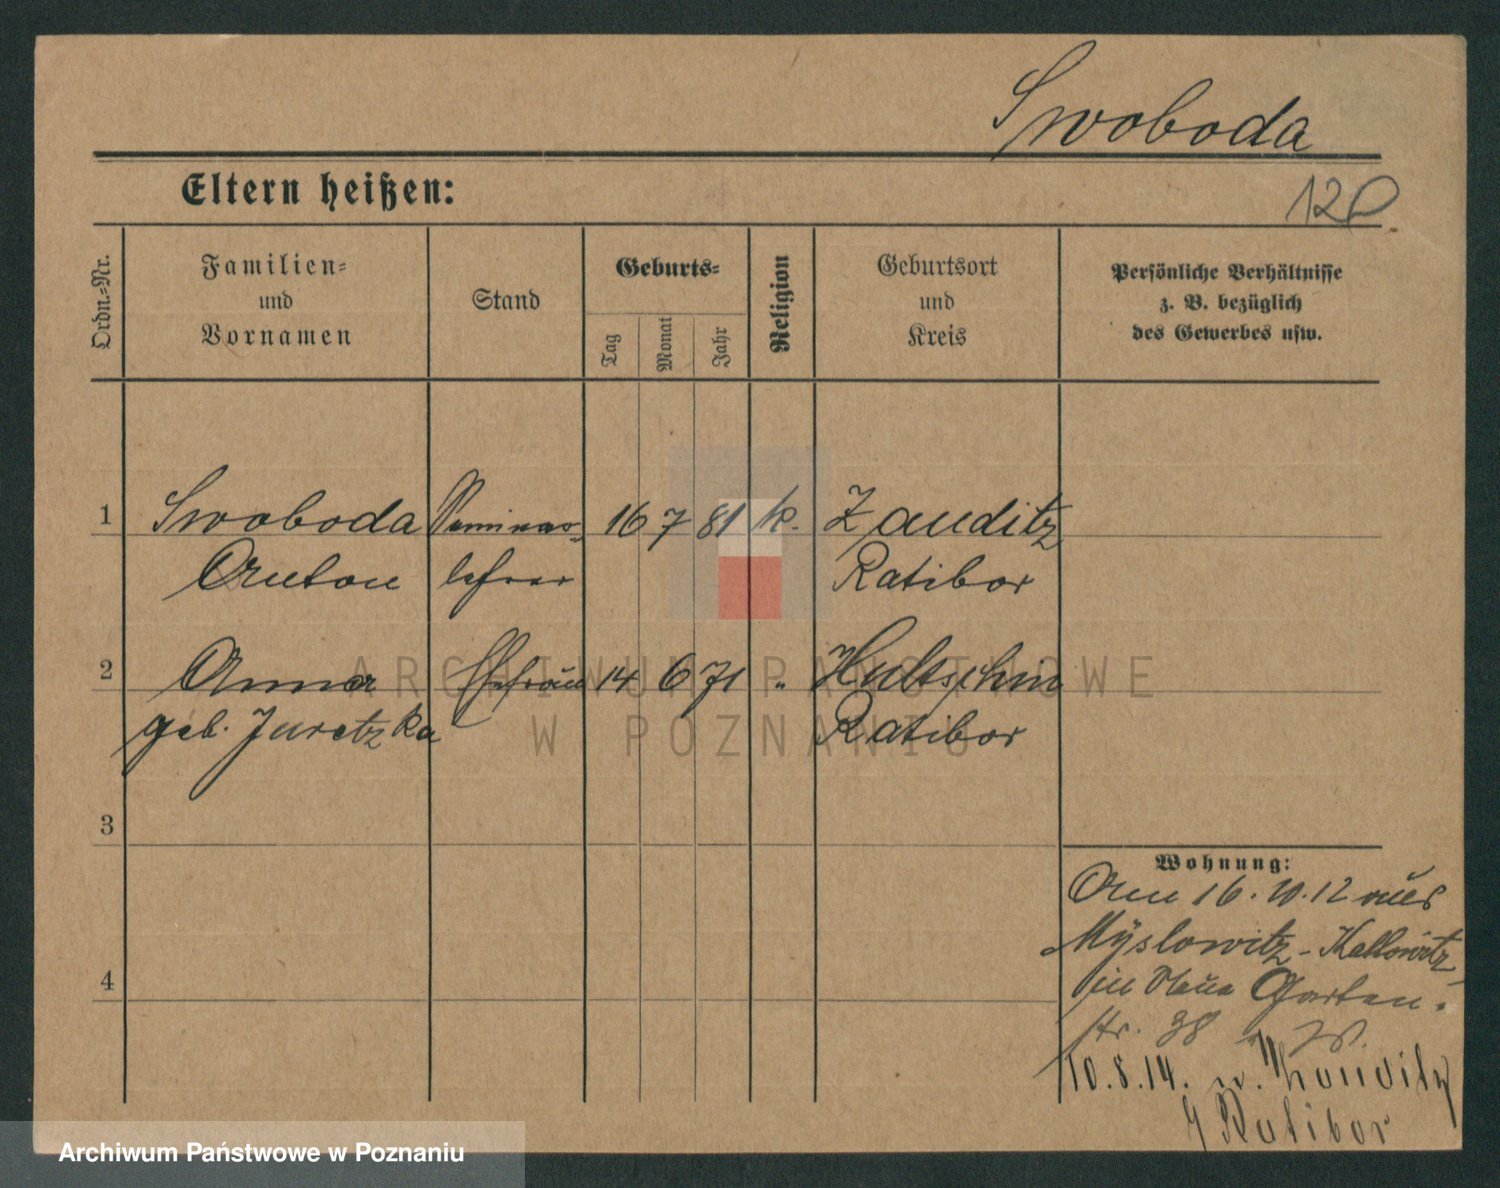 Swoboda
Eltern heißen:
120
Ordn.-Nr.
Familien-
und
Vornamen
Stand
Geburts-
Tag
Monat
Jahr
Religion
Geburtsort
und
Kreis
Persönliche Verhältnisse
z. B. bezüglich
des Gewerbes usw.
1 Swoboda Seminar- 16 7 81 k. Zauditz
Anton lehrer Ratibor
2 Anna Ehefrau 14 6 71 " Hultschin
geb. Juretzka Ratibor
3
4
Wohnung:
Am 16.10.12 aus
Myslowitz-Kattowitz
Garten-
str. 38
10.8.14. n. Zauditz
Ratibor
ARCHIWUM PAŃSTWOWE
W POZNANIU
Archiwum Państwowe w Poznaniu